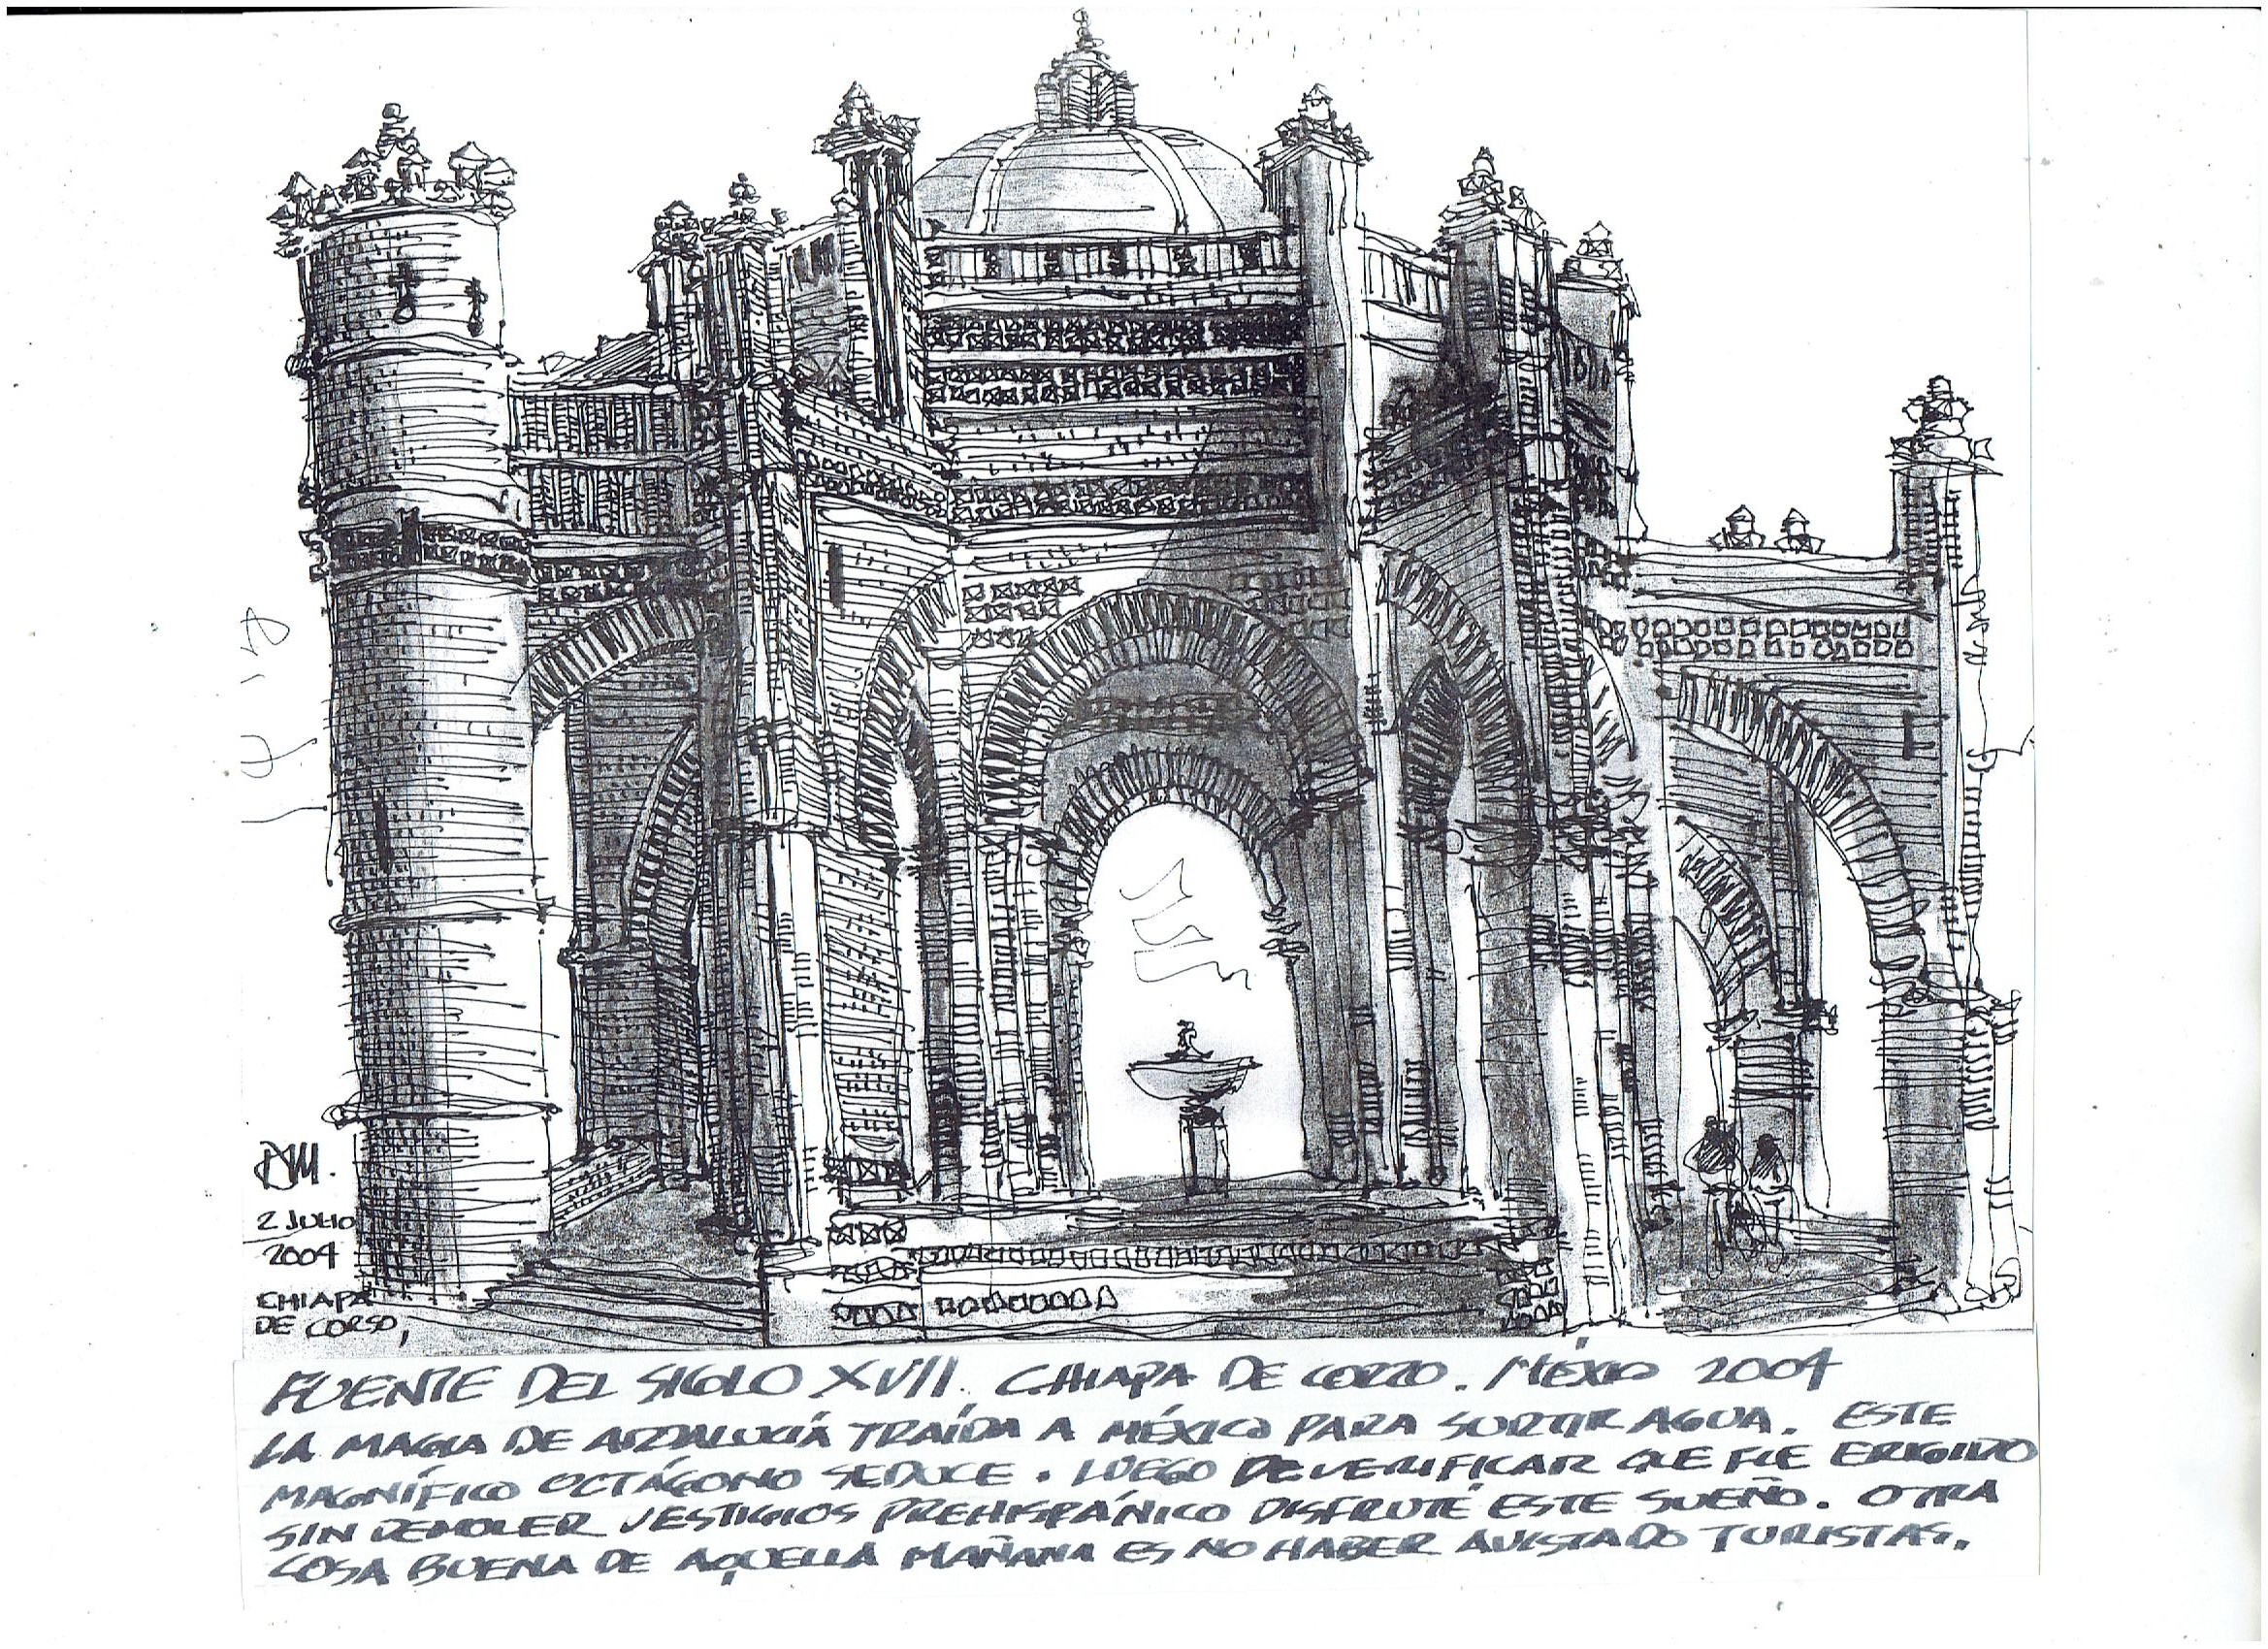 2 JULIO
2004
CHIAPA
DE CORSO,
FUENTE DEL SIGLO XVII. CHIAPA DE CORZO. MÉXICO 2004
LA MAGIA DE ANDALUCÍA TRAÍDA A MÉXICO PARA SURTIR AGUA. ESTE
MAGNÍFICO OCTÁGONO SEDUCE. LUEGO DE VERIFICAR QUE FUE ERIGIDO
SIN DEMOLER VESTIGIOS PREHISPÁNICO DISFRUTÉ ESTE SUEÑO. OTRA
COSA BUENA DE AQUELLA MAÑANA ES NO HABER AVISTADO TURISTAS.